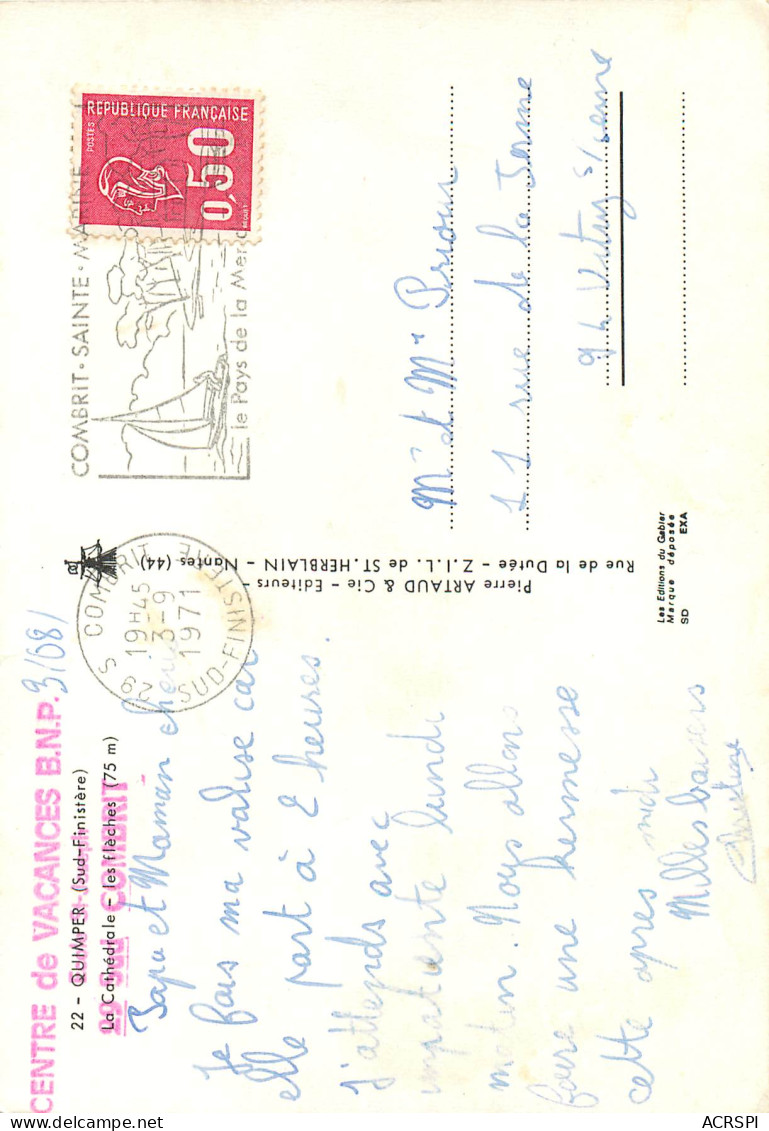 CENTRE de VACANCES B.N.P. 3/68/
22 - QUIMPER (Sud-Finistère)
La Cathédrale - les flèches (75 m)
29 Sud COMBRIT
Papa et Maman chéris
Je fais ma valise car
elle part à 2 heures.
J'attends avec
impatiente lundi
metin. Noys allons
faire une kermesse
cette apres midi
Milles baisers
Christine
Pierre ARTAUD & Cie - Editeurs -
Rue de la Dutée - Z.I.L. de ST. HERBLAIN - Nantes (44)
Les Editions du Gabier
Marque déposée
SD EXA
29 S COMBRIT
19H45
3-9
1971
SUD-FINISTERE
COMBRIT • SAINTE • MARINE
le Pays de la Mer
REPUBLIQUE FRANÇAISE
POSTES
0,50
BEQUET
Mr et Me Prioux
11 rue de la
94 Vitry s/seine
ACRSPI